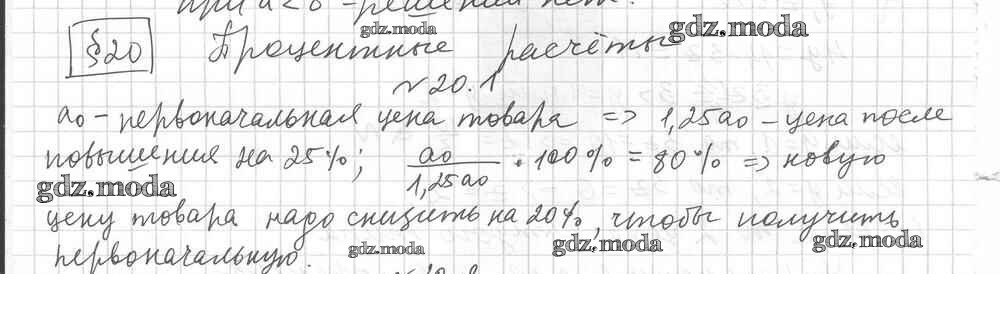 при a<0 - решений нет.
gdz.moda
gdz.moda
§20 Процентные расчёты
№20.1
a₀ - первоначальная цена товара => 1,25a₀ - цена после
повышения на 25%; a₀/1,25a₀ · 100% = 80% => новую
gdz.moda
цену товара надо снизить на 20%, чтобы получить
первоначальную.
gdz.moda
gdz.moda
gdz.moda